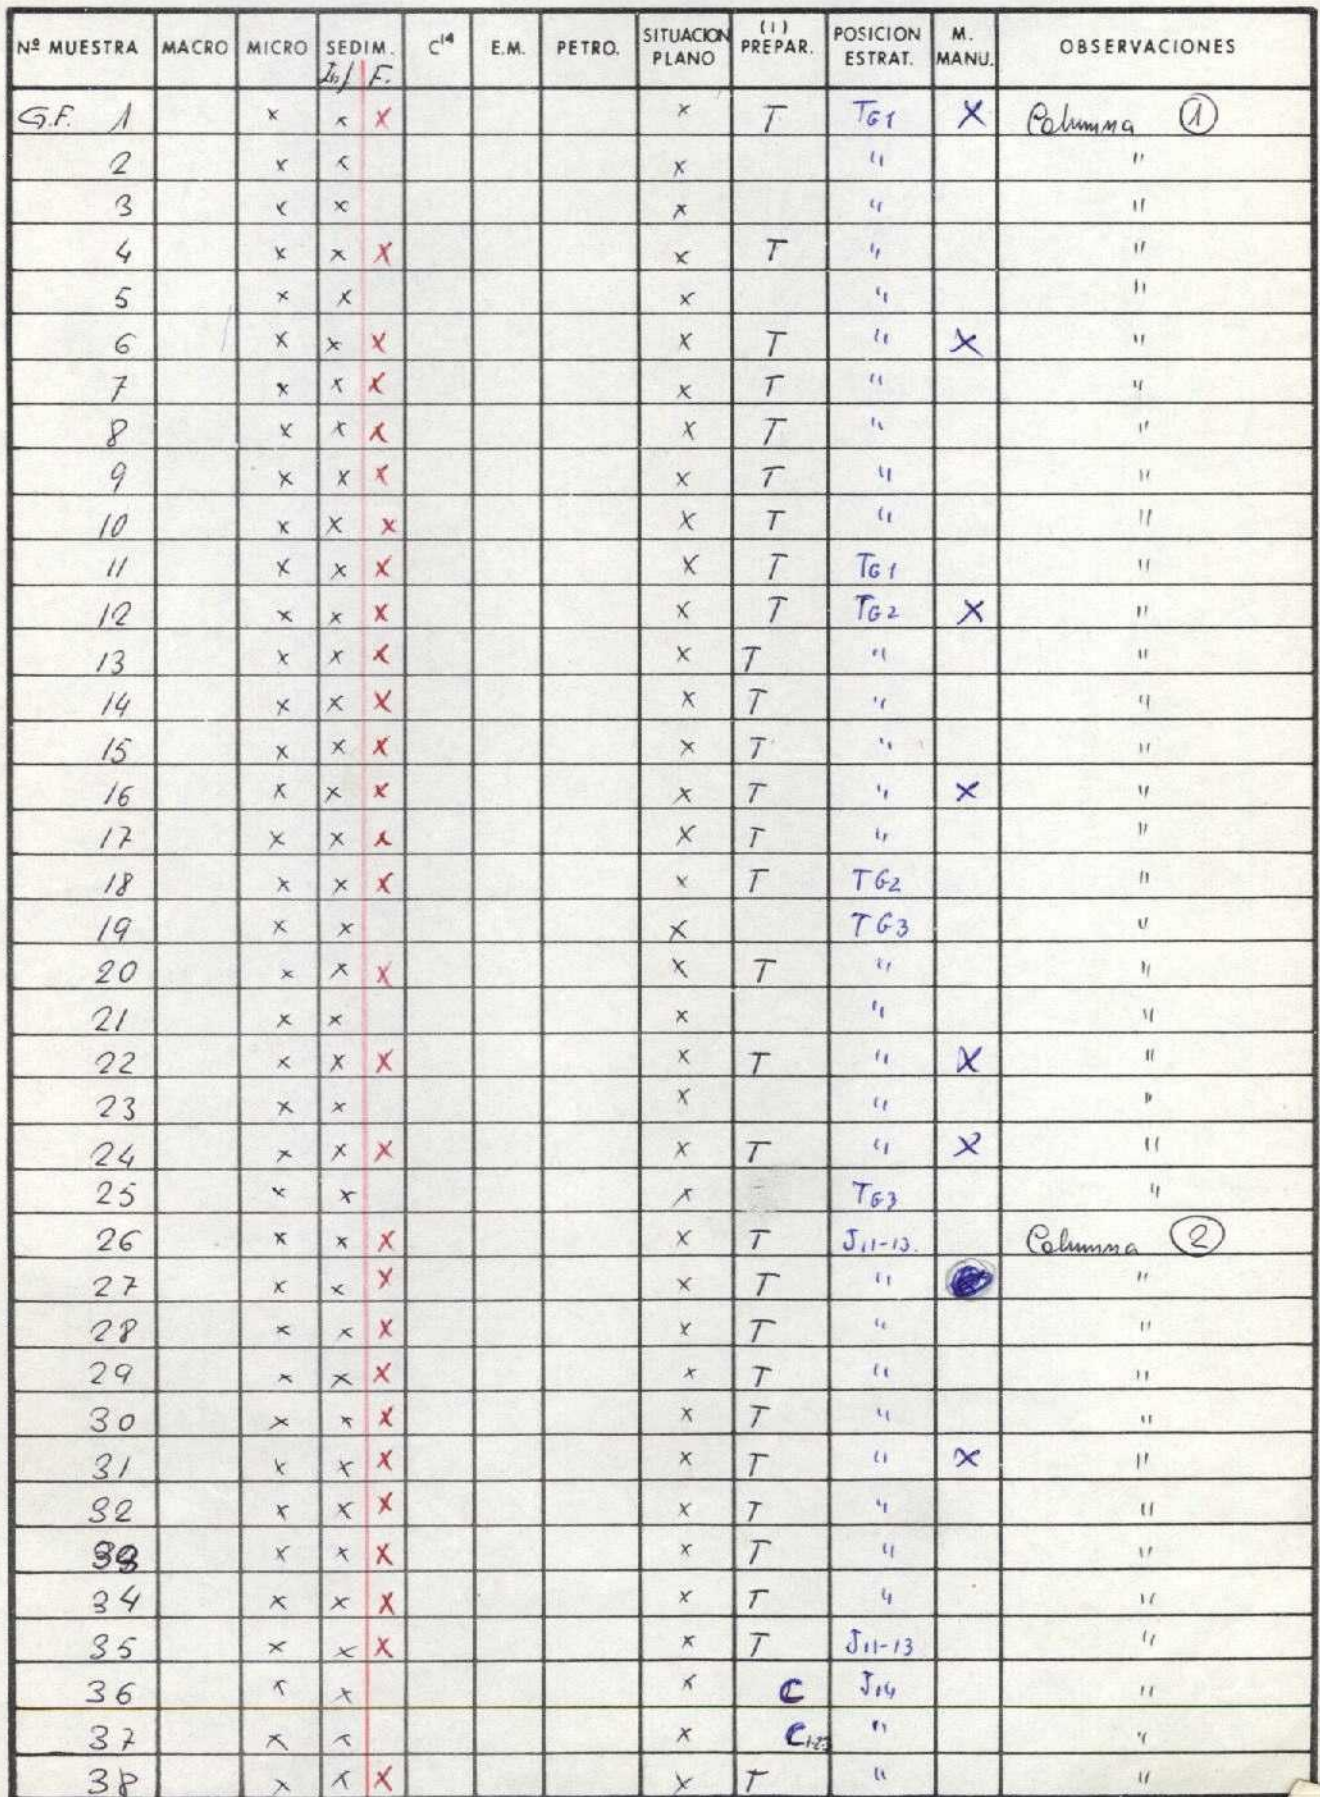 Nº MUESTRA MACRO MICRO SEDIM. C14 E.M. PETRO. SITUACION PLANO (1) PREPAR. POSICION ESTRAT. M. MANU. OBSERVACIONES
Inf F.
G.F. 1 x x x x T TG1 x Columna 1
2 x x x " "
3 x x x " "
4 x x x x T " "
5 x x x " "
6 x x x x T " x "
7 x x x x T " "
8 x x x x T " "
9 x x x x T " "
10 x x x x T " "
11 x x x x T TG1 "
12 x x x x T TG2 x "
13 x x x x T " "
14 x x x x T " "
15 x x x x T " "
16 x x x x T " x "
17 x x x x T " "
18 x x x x T TG2 "
19 x x x TG3 "
20 x x x x T " "
21 x x x " "
22 x x x x T " x "
23 x x x " "
24 x x x x T " x "
25 x x x TG3 "
26 x x x x T J11-13. Columna 2
27 x x x x T " "
28 x x x x T " "
29 x x x x T " "
30 x x x x T " "
31 x x x x T " x "
32 x x x x T " "
33 x x x x T " "
34 x x x x T " "
35 x x x x T J11-13 "
36 x x x C J14 "
37 x x x C1-2-3 " "
38 x x x x T " "